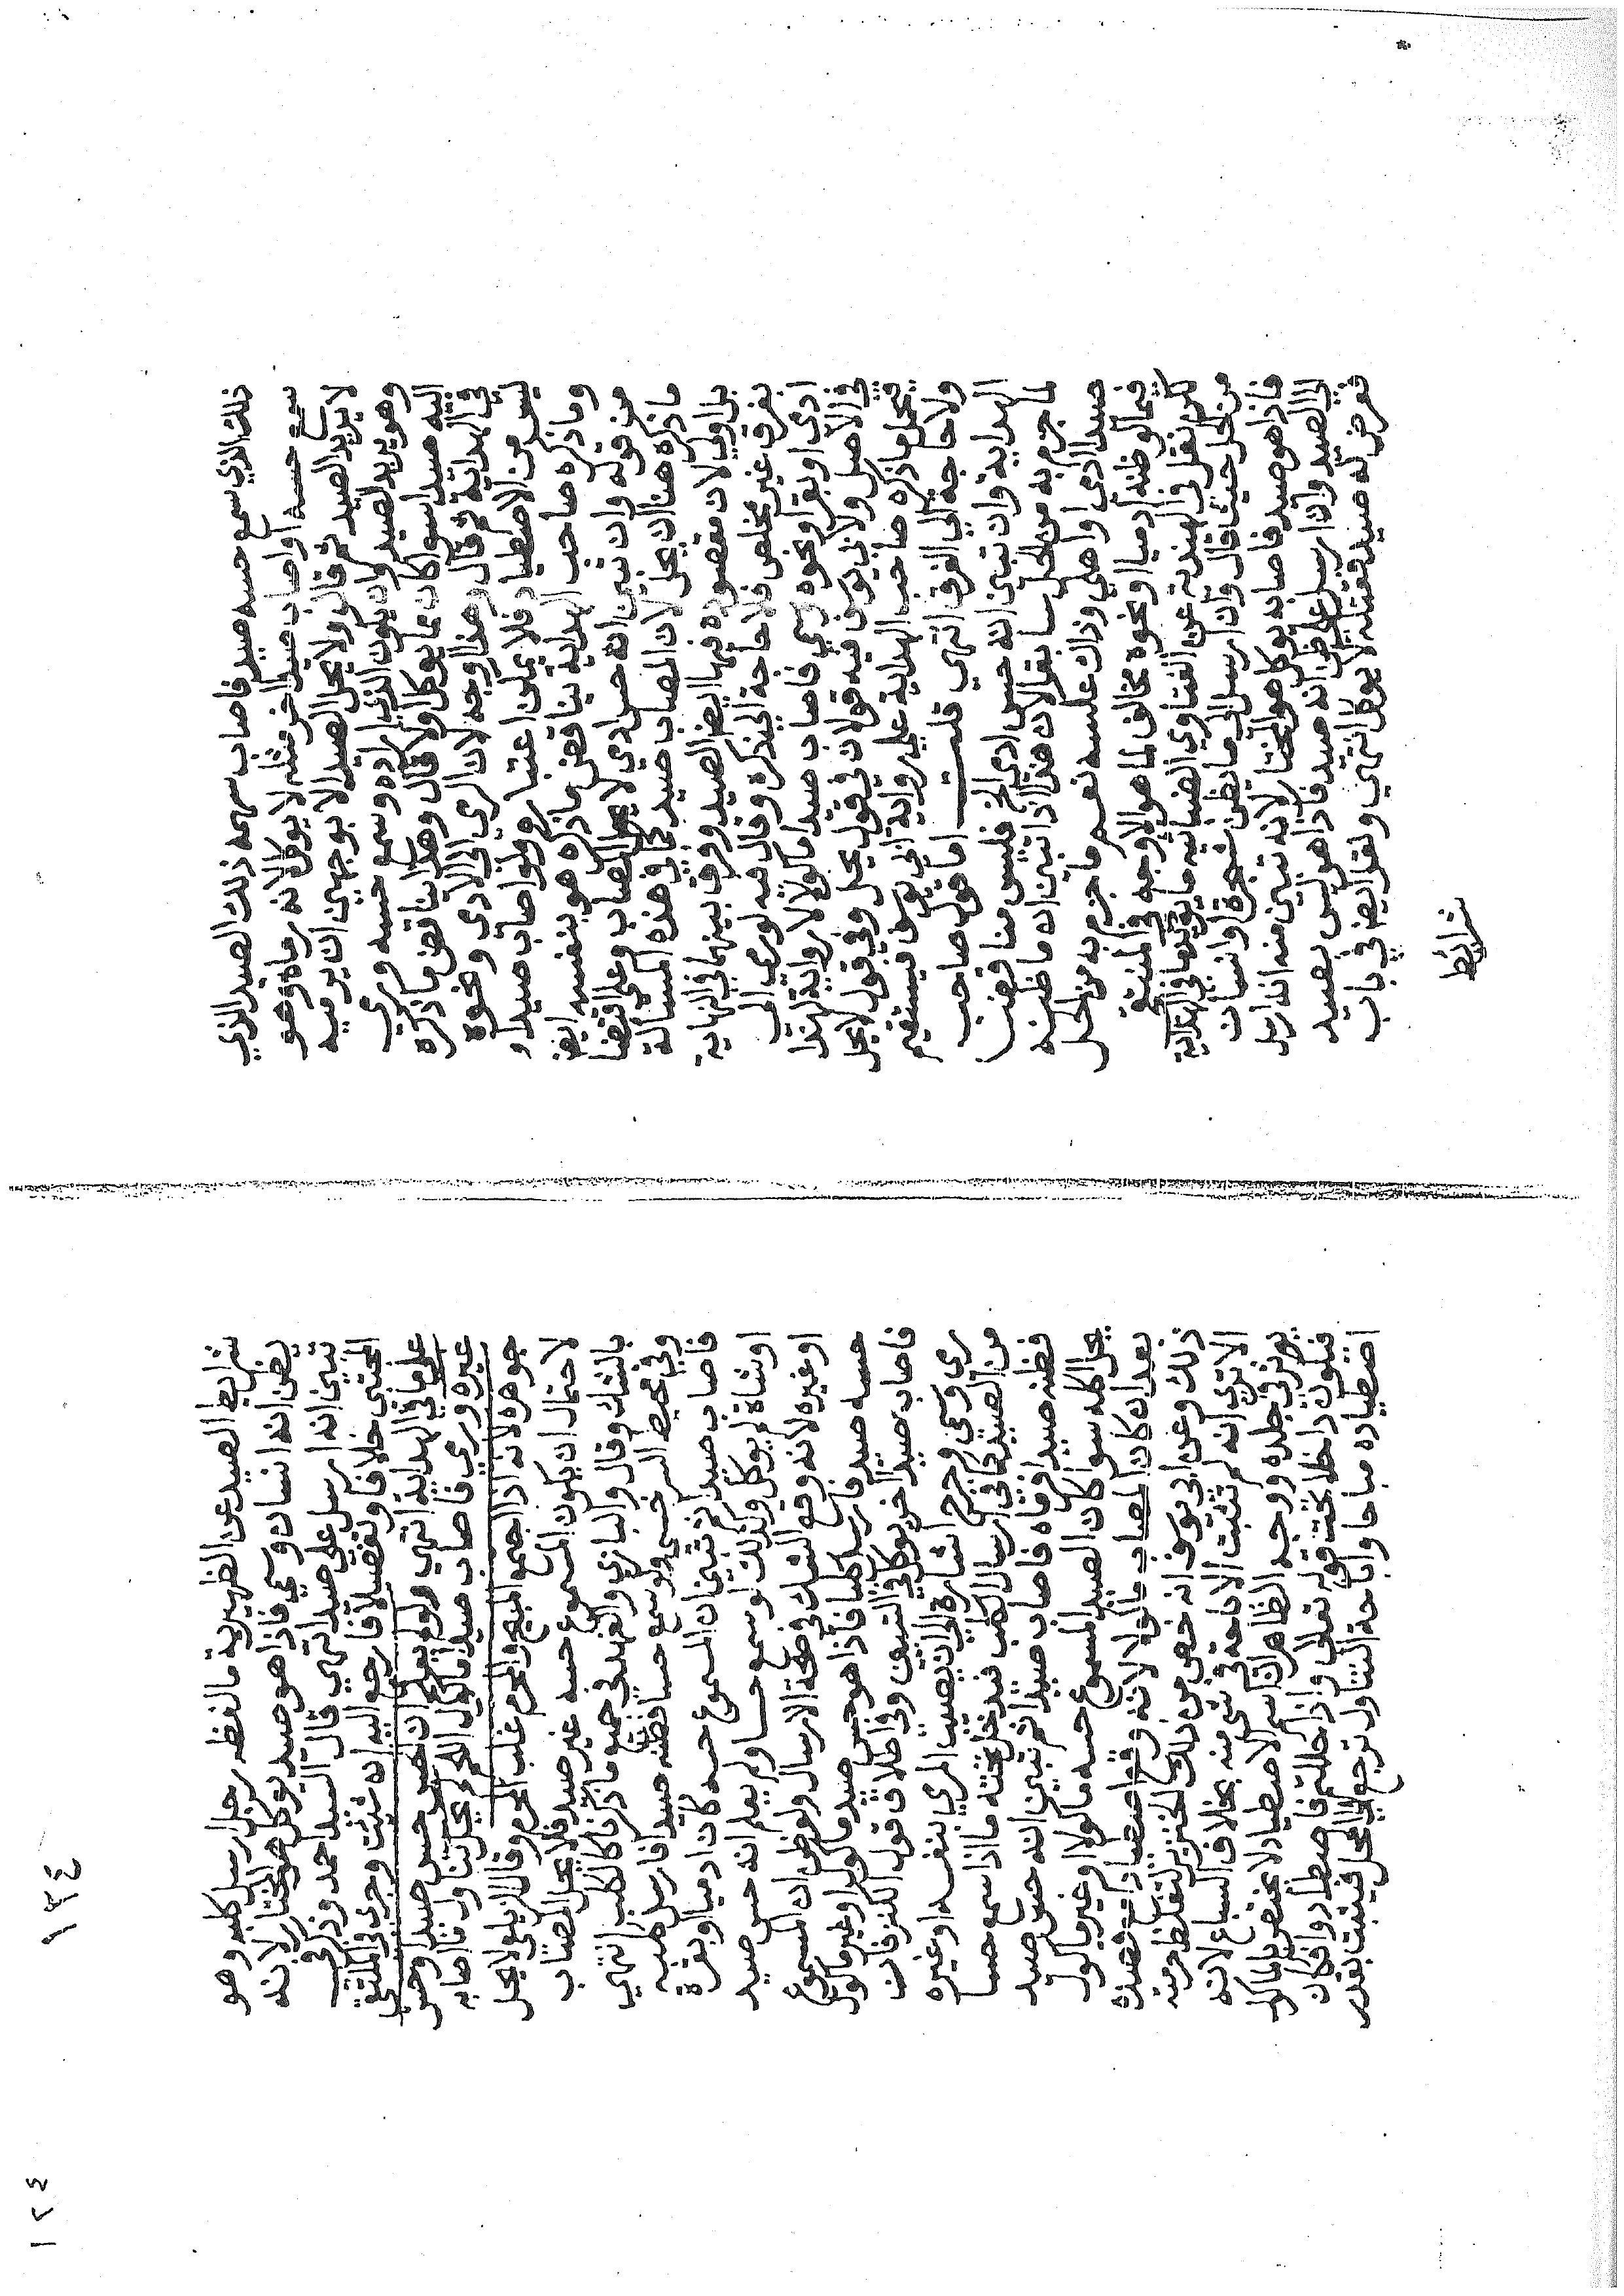 ذلك الذي سمع حسه صيد فاصاب سهمه ذلك الصيد الذي
سمع حسه او اصاب صيدا اخر مثله لا يوكل لانه رماه وهو
لا يريد الصيد ثم قال ولا يحل الصيد الا بوجهين ان يرميه
وهو يريد الصيد وان يكون الذي اراده وسمع حسه ورمي
اليه صيدا سوا كان مما يوكل اولا قال وهذا يناقض ما ذكره
في الهداية ثم قال وهذا اوجه لان الرمي الى الادمي ونحوه
ليس من الاصطياد فلا يمكن اعتباره ولو اصاب صيدا و
وما ذكره صاحب الهداية يناقض ما ذكره هو بنفسه ايضا
من قوله وان تبين انه حس ادمي لا يحل المصاب وعلى اقتضا
ما ذكره هنا ان يحل لان المصاب صيد كما في هذه المسالة
بل اولى لان مقصوده فيها ايضا الصيد وفرق بينهما في النهاية
بفرق غير مخلص فلا حاجة الى ذكره وقال فيه لو رمي الى
ادمي او بقر او نحوه وسمي فاصاب صيدا ماكولا لا رواية لهذا
في الاصل ولابي يوسف فيه قولان في قول يحل وفي قول لا يحل
فيحمل ما ذكره صاحب الهداية على رواية ابي يوسف فيستقيم
ولا حاجة الى الفرق انتهي قلت اما قول صاحب
الهداية وان تبين انه حس ادمي الخ فليس مناقضا
لما جزم به من الحل سابقا لان هذا اذا تبين ان ما ظنه
صيدا ادمي او اهلي وذاك عكسه نعم ما جزم به من الحل
فيما لو ظنه ادميا او نحوه مخالف لما هو الاوجه في
لكن نقل في الهندية عن الفتاوي الغياثية ما يؤيد ما في الهداية
من الحل حيث قال وان ارسل الى ما يظن شجرة او انسان
فاذا هو صيد فاصابه يوكل هو المختار لانه تبين منه انه ارسل
الى الصيد وان ارسل على ظن انه صيد فاذا هو ليس بصيد
فعرض له صيد فقتله لا يوكل انتهي ونقل ايضا في باب
شرايط
١٣٤
شرايط الصيد عن الظهيرية ما لفظه رجل ارسل كلبه وهو
يظن انه انسان وسمي فاذا هو صيد يوكل هو المختار لانه
تبين انه ارسل على صيد انتهي قال السيد احمد وذكر في
المجتبى خلافا وتفصيلا فارجع اليه ان شئت وجرى في الملتقى
على ما في الهداية انتهي ولو لم يعلم ان الحس حس صيد او حس
غيره ورمي فاصاب صيدا ماكول اللحم لم يحل تناول ما اصابه
جوهره لانه اذا اجتمع المبيح والمحرم غلب المحرم وقال الزيلعي لا يحل
لاحتمال ان يكون المسموع حسه غير صيد فلا يحل المصاب
بالشك وقال والبازي والفهد في جميع ما ذكرنا كالكلب انتهي
وفي محيط السرخسي ولو سمع حسا فظنه صيدا فارسل كلبه
فاصاب صيدا ثم تبين ان المسموع حسه كان ادميا او بقرة
او شاة لم يوكل وكذلك لو سمع حسا ولم يعلم انه حس صيد
او غيره لانه وقع الشك في صحة الارسال ولو ظن ان المسموع
حسه صيد فارسل كلبا فاذا هو حس صيد ماكول او غير ماكول
فاصاب صيدا اخر يوكل في التبيين وفي اطلاق قول الكنز فان
رمي وسمي وجرح اشارة الى ان يصيب المرمي بنفسه او غيره
من الصيد كما في ارسال الكلب فيدخل تحته ما اذا سمع حسا
فظنه صيدا فرماه فاصاب صيدا ثم تبين انه حس صيد
يحل اكله سوا كان الصيد المسموع حسه ماكولا او غير ماكول
بعد ان كان المصاب ماكولا لانه وقع اصطيادا مع قصده
ذلك وعن ابي يوسف انه خص من ذلك الخنزير لتغلظ حرمته
الا تري انه لم تثبت الاباحة في شي منه بخلاف السباع لانه
يوثر في جلده ووجه الظاهر ان اسم الاصطياد لا يختص بالماكول
فيكون داخلا تحت قوله تعالى واذا حللتم فاصطادوا فكان
اصطياده مباحا واباحة التناول ترجع الى المحل فيثبت بقدر
١٢٤